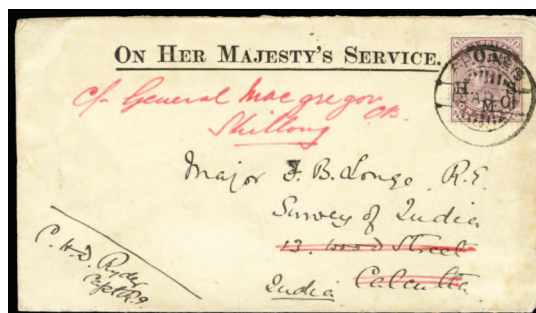 ON HER MAJESTY'S SERVICE.
c/o General Macgregor CB.
Shillong
Major F. B. Longe, R.E.
Survey of India
13. Wood Street
Calcutta
India
C. H. D. Ryder
Capt R.E.